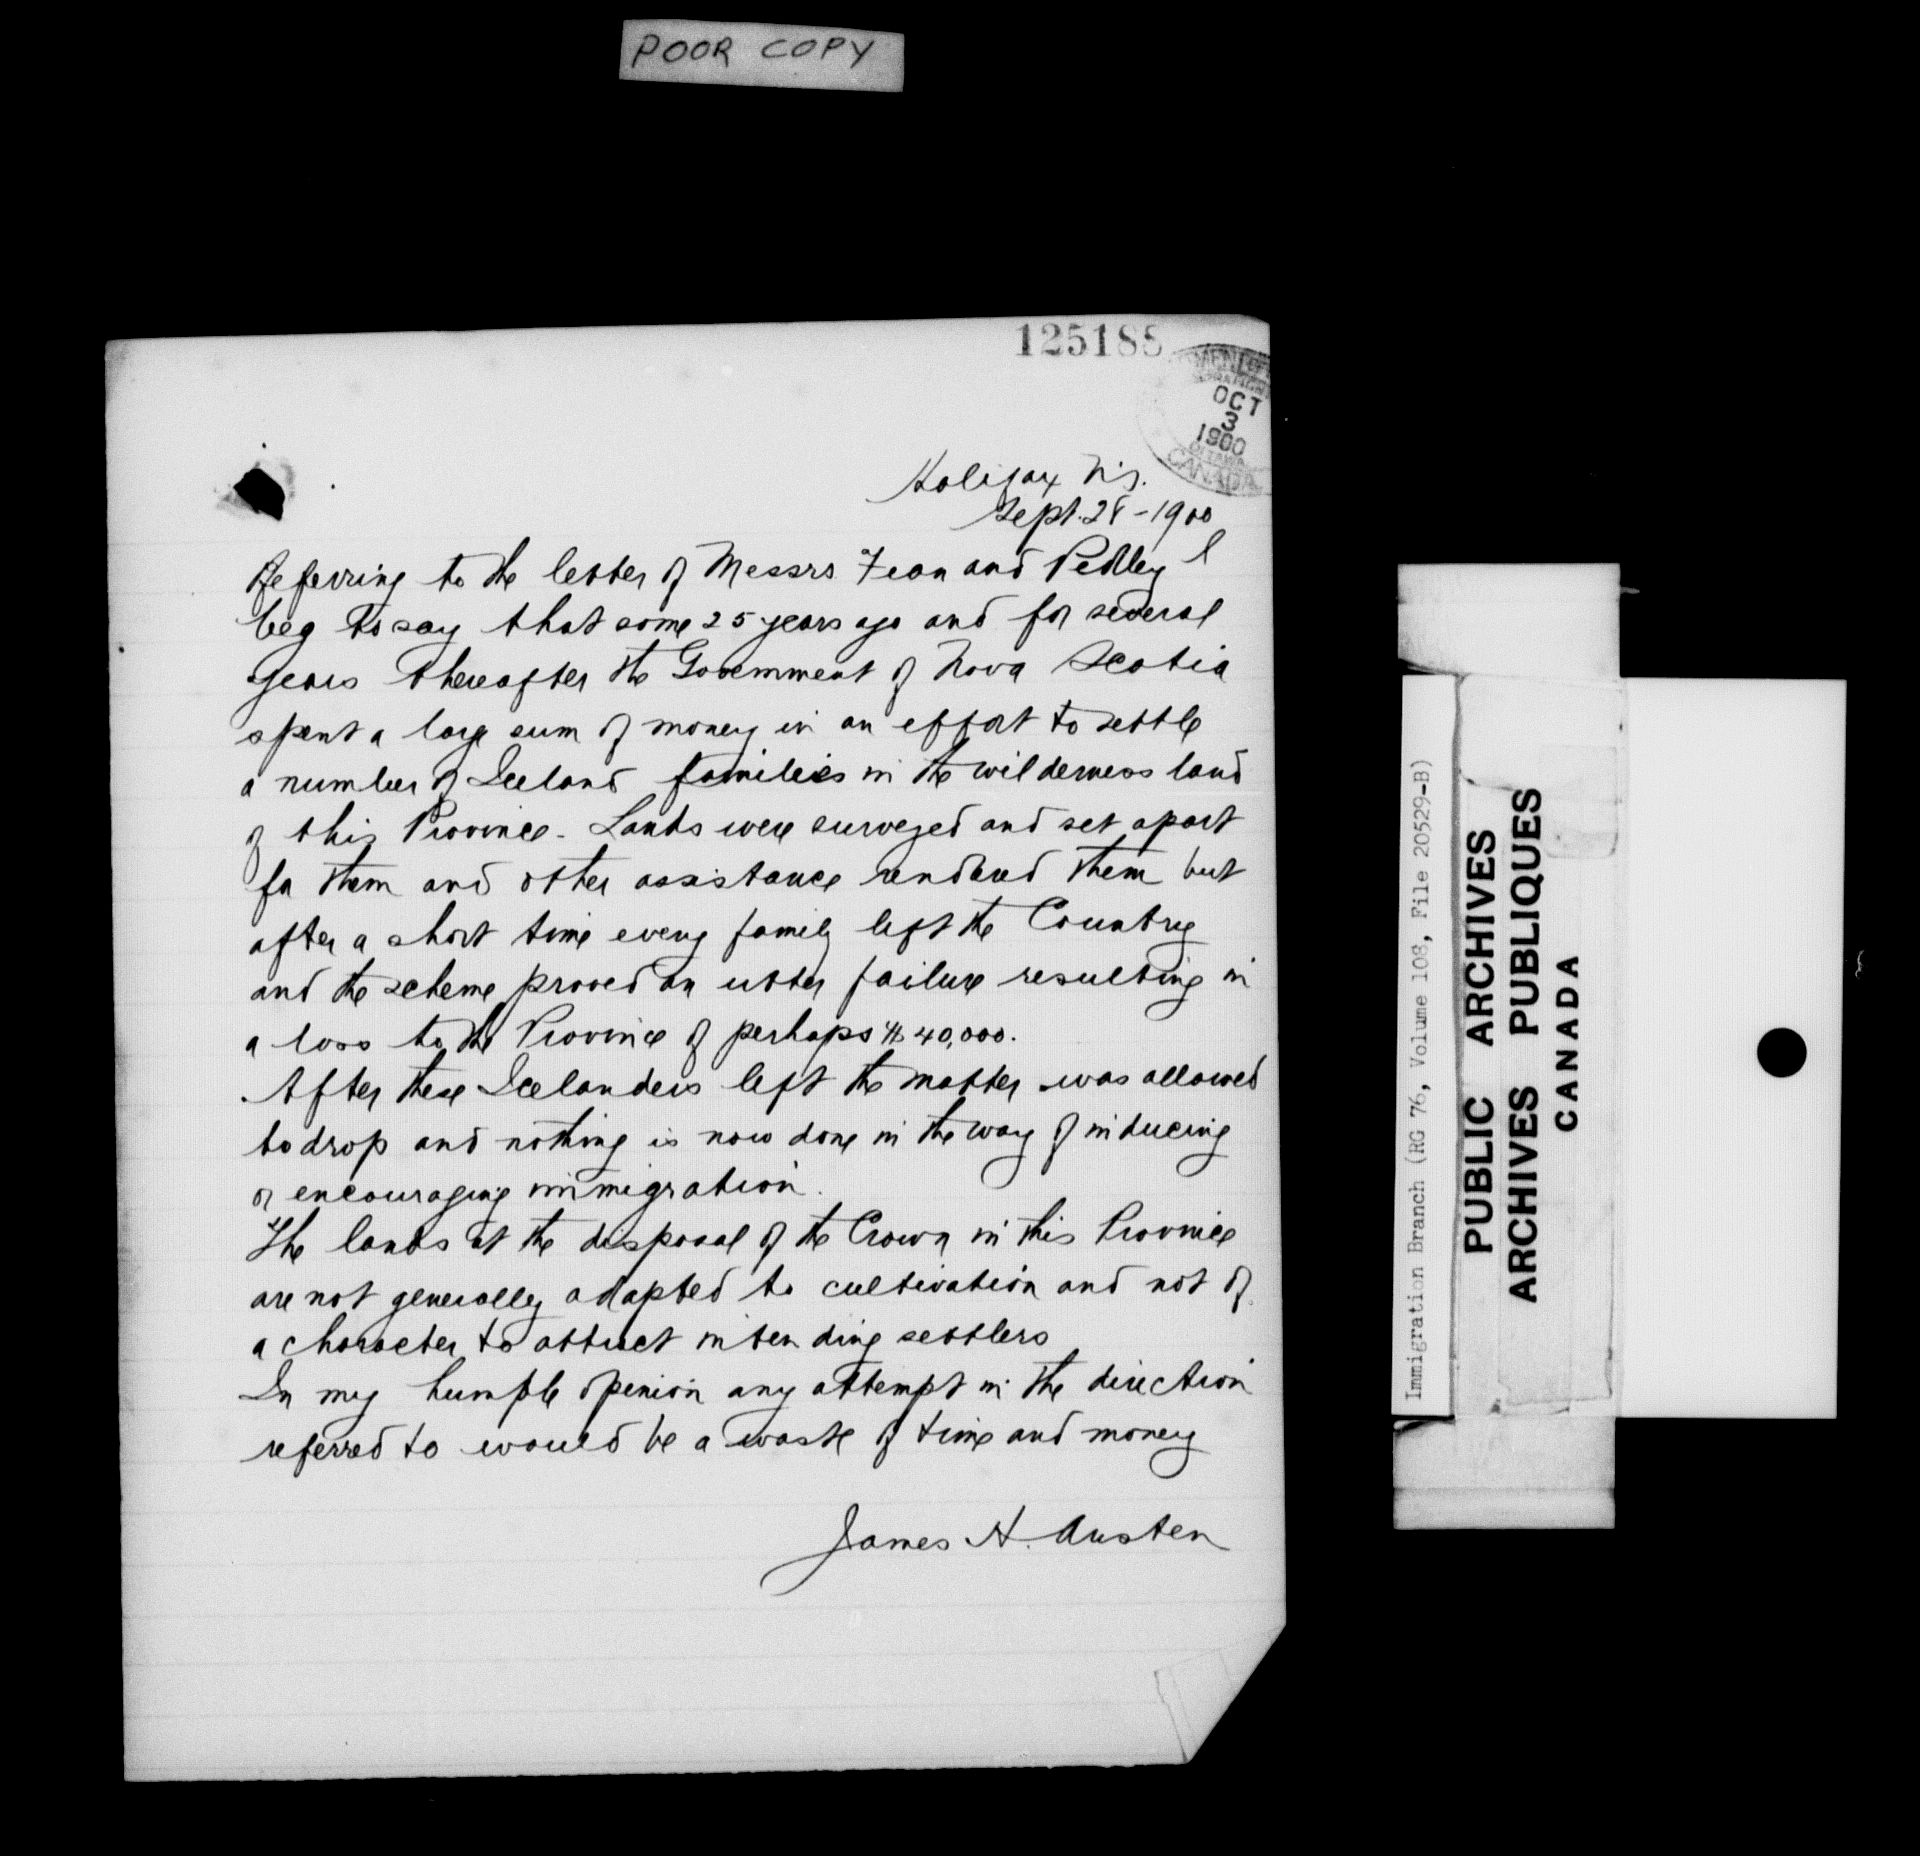 POOR COPY
125188
OCT
3
1900
CANADA
Halifax N.S.
Sept. 28 - 1900
Referring to the letter of Messrs and Pedley I
beg to say that some 25 years ago and for several
years thereafter the Government of Nova Scotia
spent a large sum of money in an effort to settle
a number of Iceland families in the wilderness land
of this Province - Lands were surveyed and set apart
for them and other assistance rendered them but
after a short time every family left the Country
and the scheme proved an utter failure resulting in
a loss to the Province of perhaps $40,000.
After these Icelanders left the matter was allowed
to drop and nothing is now done in the way of inducing
or encouraging immigration.
The lands at the disposal of the Crown in this Province
are not generally adapted to cultivation and not of
a character to attract intending settlers
In my humble opinion any attempt in the direction
referred to would be a waste of time and money
James H. Austen
Immigration Branch (RG 76, Volume 108, File 20529-B)
PUBLIC ARCHIVES
ARCHIVES PUBLIQUES
CANADA